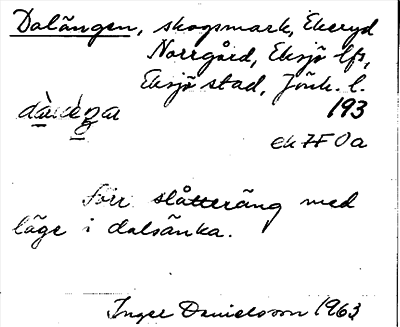 Dalängen, skogsmark, Ekeryd
Norrgård, Eksjö lfs,
Eksjö stad, Jönk. l.
193
ek 7F 0a
förr slåtteräng med
läge i dalsänka.
Inger Danielsson 1963